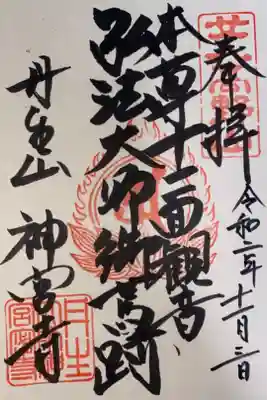 奉拝
令和二年十一月三日
本尊十一面観音
弘法大師御
丹生山
神宮寺